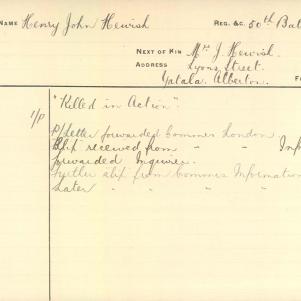 NAME Henry John Hewish REG. &C. 50th Bat
NEXT OF KIN Mr J. Hewish.
ADDRESS Lyons Street.
Yatala. Alberton.
"Killed in Action".
1/P
P/Letter forwarded Commrs London
Slip received from " " Inf
forwarded Inquirer.
Further slip from Commrs Information
Later " " " "